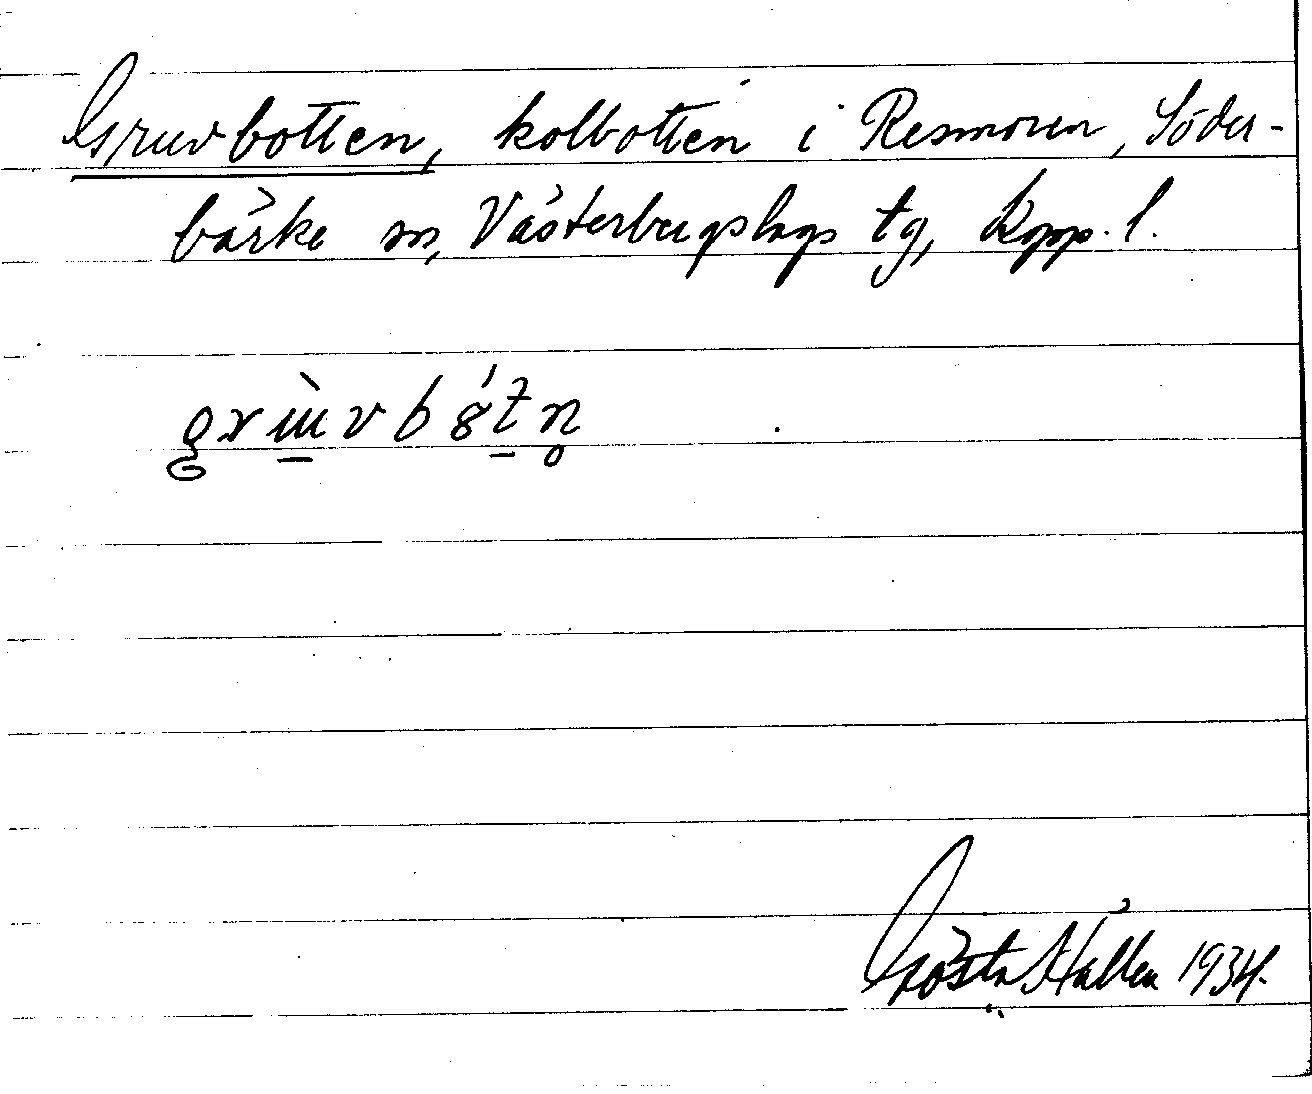 Gruvbotten, kolbotten i Resmoren, Söder-
bärke sn, Västerbergslags tg, Kopp. l.
Gösta Hallén 1934.